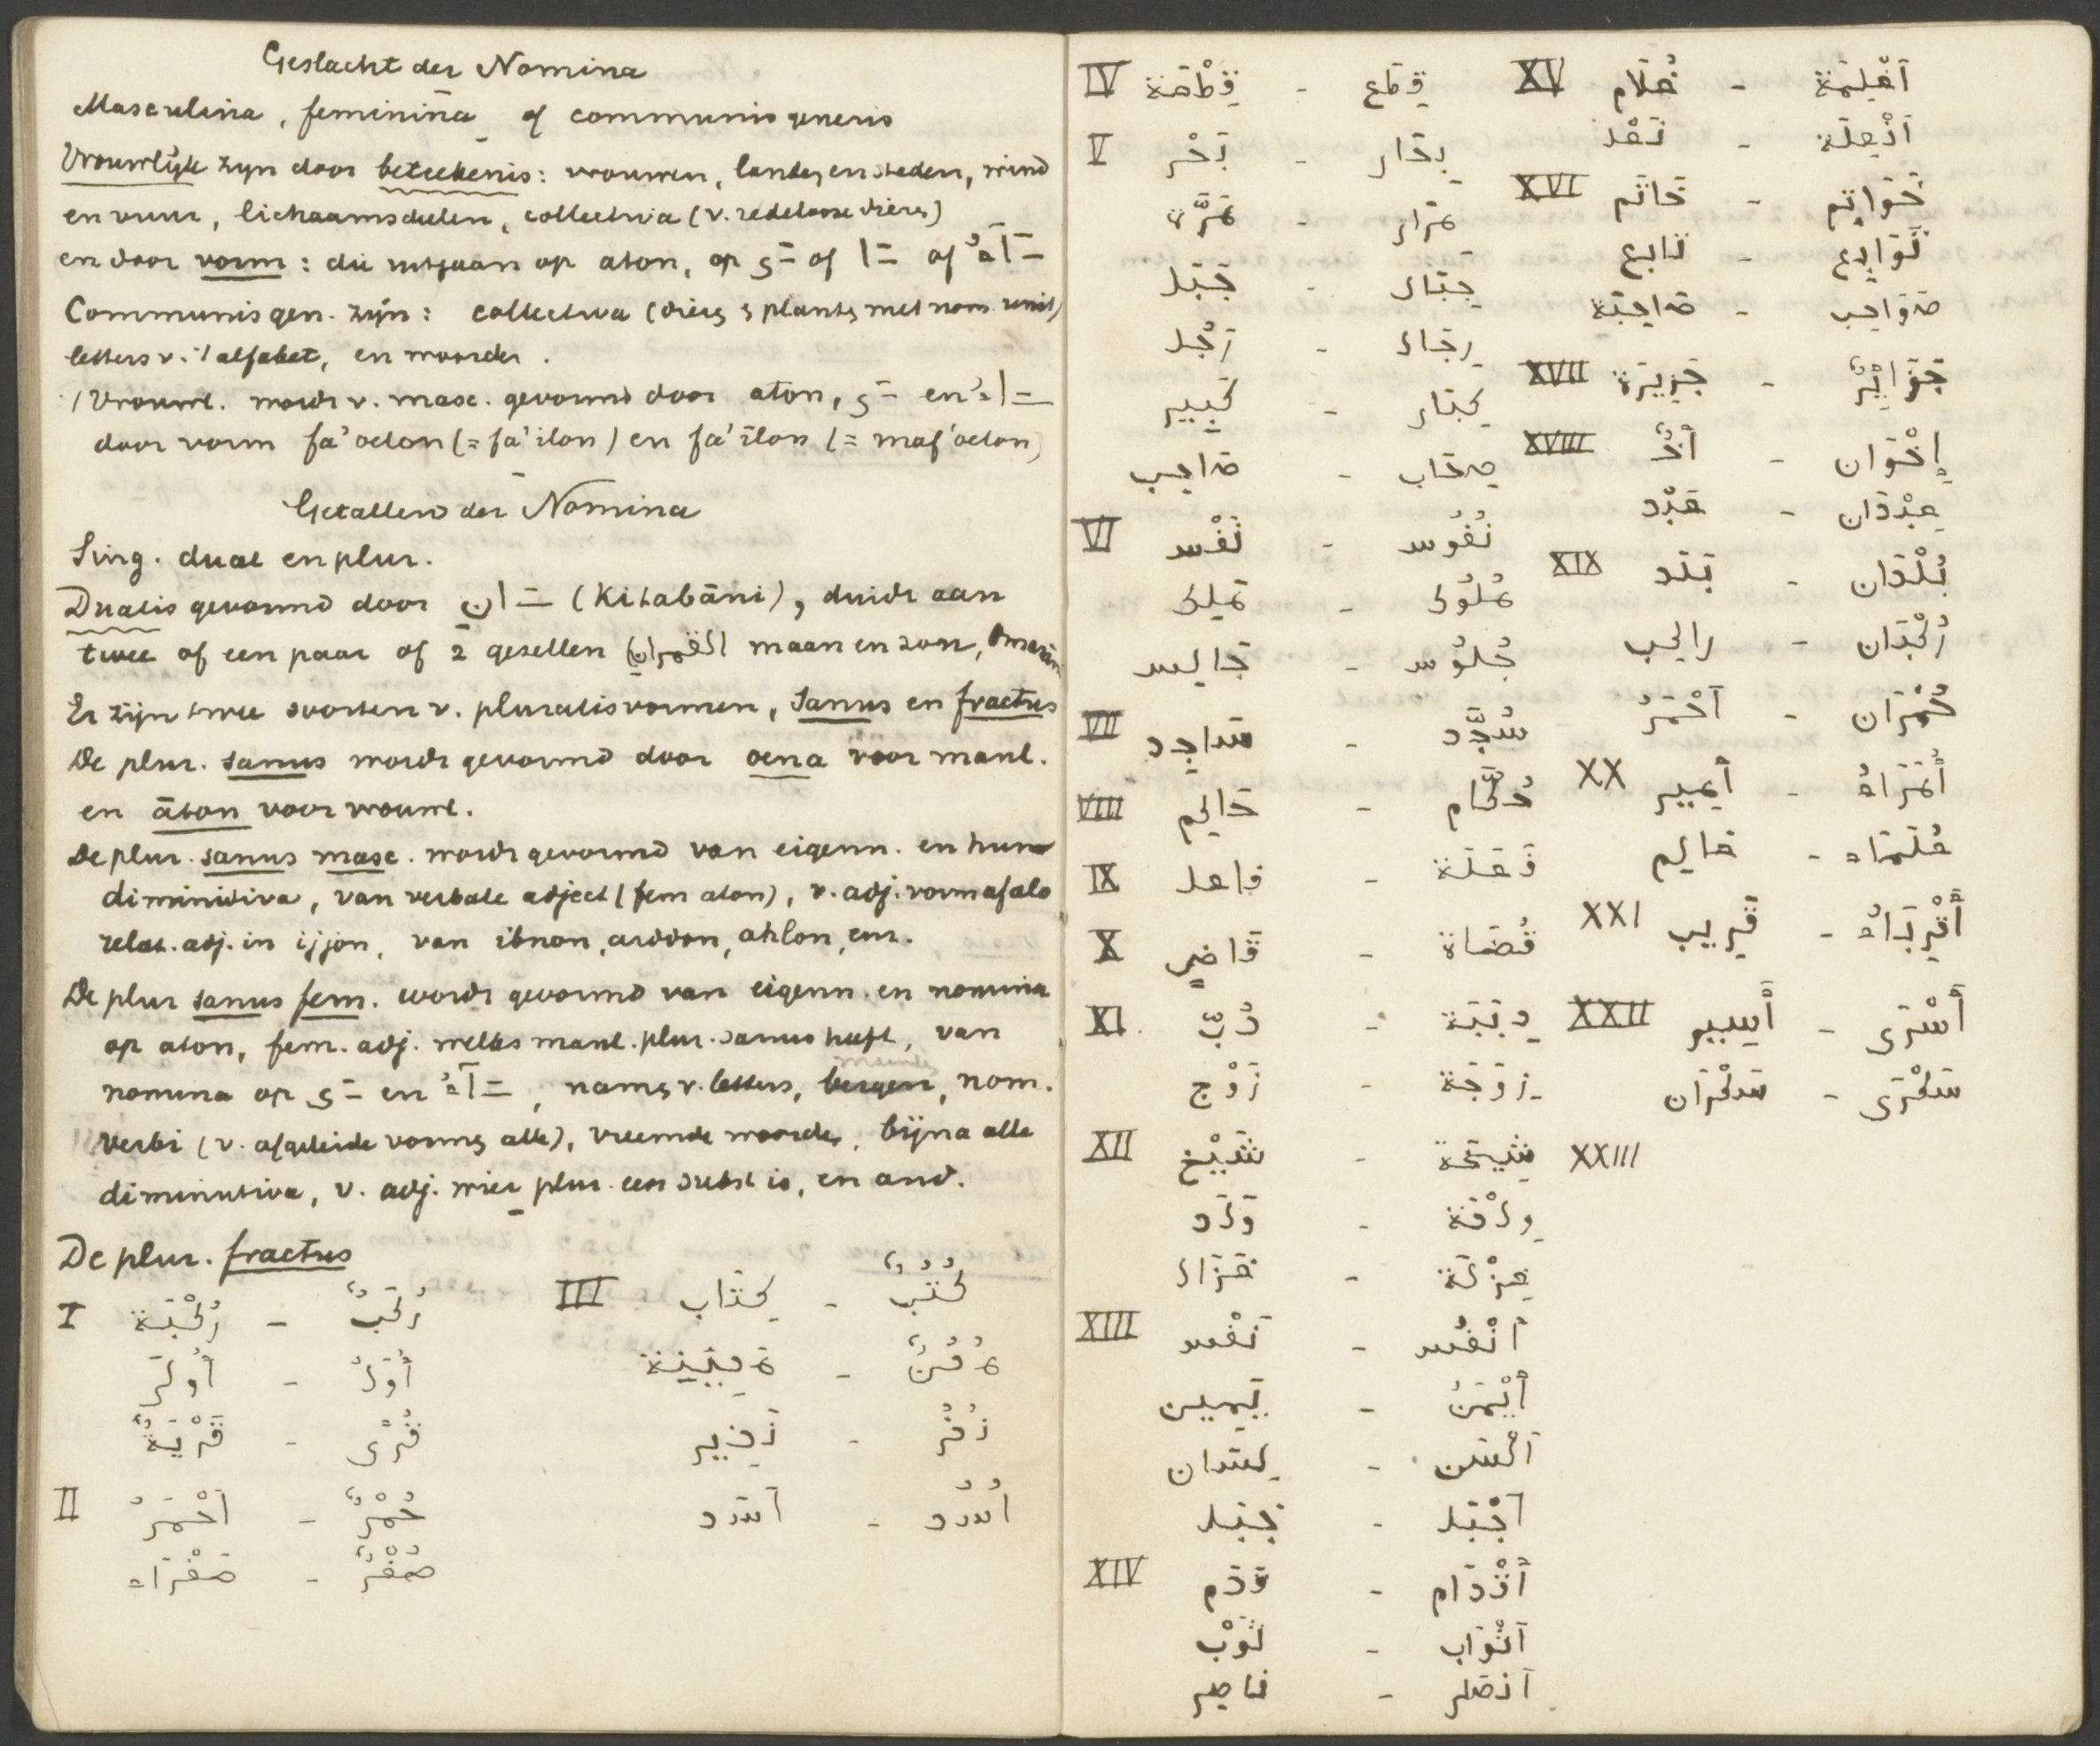 Geslacht der Nomina
Masculina, feminina of communis generis
Vrouwlijk zijn door beteekenis: vrouwen, landen en steden, wind
en vuur, lichaamsdelen, collectiva (v. redelooze dieren)
en door vorm: die uitgaan op aton, op ـَى of ـَا of ـَآءُ
Communis gen. zijn: collectiva (dieren & planten met nom. unit)
letters v. 't alfabet, en woorden.
Vrouwl. wordt v. masc. gevormd door aton, ـَى en ـَاءُ
door vorm fa'oelon (= fa'ilon) en fa'īlon (= maf'oelon)
Getallen der Nomina
Sing. dual en plur.
Dualis gevormd door ـَانِ (Kitabāni), duidt aan
twee of een paar of 2 gezellen (القمرانِ) maan en zon,
Er zijn twee soorten v. pluralisvormen, sanus en fractus
De plur. sanus wordt gevormd door oena voor manl.
en āton voor vrouwl.
De plur. sanus masc. wordt gevormd van eigenn. en hun
diminitiva, van verbale adject (fem aton), v. adj. vorm afalo
relat. adj. in ijjon, van ibnon, ardon, ahlon, enz.
De plur sanus fem. wordt gevormd van eigenn. en nomina
op aton, fem. adj. welks manl. plur. sanus heeft, van
nomina op ـَى en ـَآءُ, namen v. letters, nom.
verbi (v. afgeleide vormen alle), vreemde woorden, bijna alle
diminutiva, v. adj. wier plur. een subst is, en and.
De plur. fractus
I رُكْبَة - رُكَبٌ III كِتَاب - كُتُبٌ
أُولَى - أُوَلُ سَفِينَة - سُفُنٌ
قَرْيَةٌ - قُرًى
II أَحْمَرُ - حُمْرٌ أَسَد - أُسُد
صَفْرَاء - صُفْرٌ
IV قِطْعَة - قِطَع XV غُلَام - أَغْلِمَة
V بَحْر - بِحَار
مَرَّة - مِرَار XVI خَاتَم - خَوَاتِم
جَبَل - جِبَال تَابِع - تَوَابِع
رَجُل - رِجَال صَاحِبَة - صَوَاحِب
كَبِير - كِبَار XVII جَزِيرَة - جَزَائِرُ
صَاحِب - صِحَاب XVIII أَخٌ - إِخْوَان
VI نَفْس - نُفُوس عَبْد - عِبْدَان
مَلِك - مُلُوك XIX بَلَد - بُلْدَان
جَالِس - جُلُوس رَاكِب - رُكْبَان
VII سَاجِد - سُجَّد أَحْمَرُ - حُمْرَان
VIII حَاكِم - حُكَّام XX أَمِير - أُمَرَاءُ
IX فَاعِل - فَعَلَة عَالِم - عُلَمَاء
X قَاضِي - قُضَاة XXI قَرِيب - أَقْرِبَاءُ
XI دُبّ - دِبَبَة XXII أَسِير - أَسْرَى
زَوْج - زِوَجَة سَكْرَان - سَكْرَى
XII شَيْخ - شِيخَة XXIII
وَلَد - وِلْدَة
غَزَال - غِزْلَة
XIII نَفْس - أَنْفُس
يَمِين - أَيْمَنُ
لِسَان - أَلْسُن
جَبَل - أَجْبَل
XIV قَدَم - أَقْدَام
ثَوْب - أَثْوَاب
نَاصِر - أَنْصَار